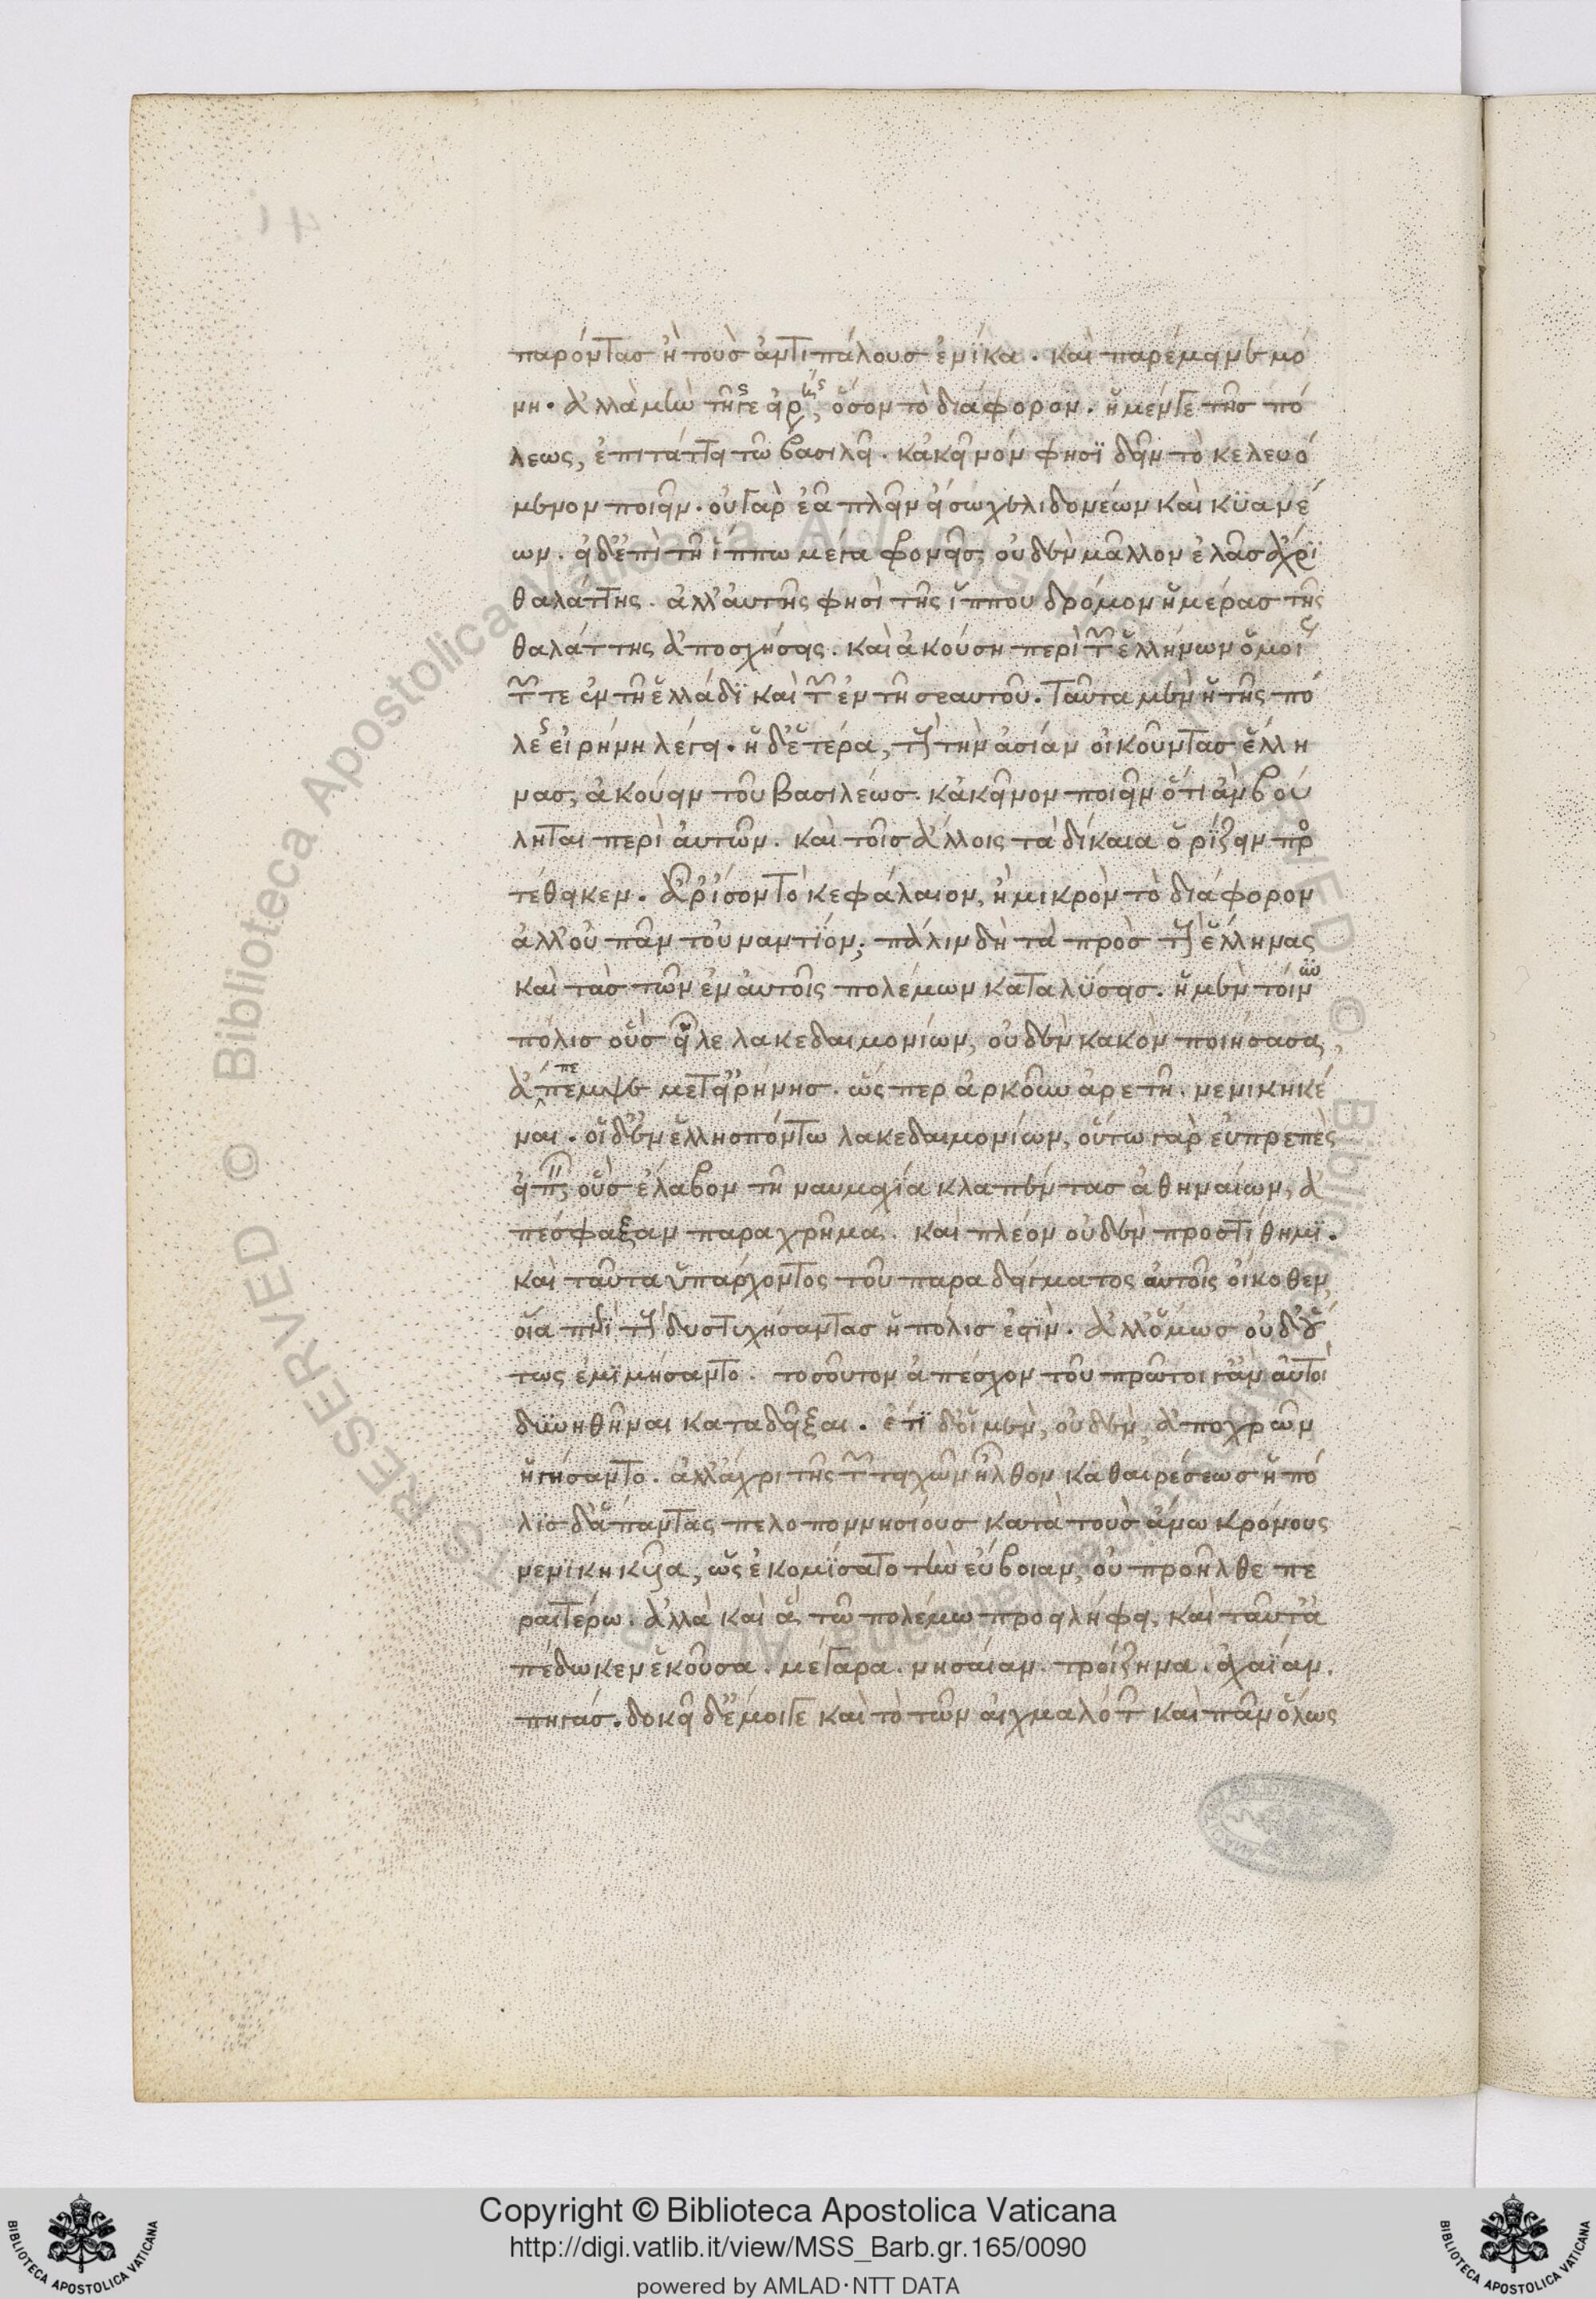 παρόντασ ἢ τοὺσ ἀντιπάλουσ ἐνίκα. καὶ παρέμεινε μό
νη. ἀλλὰ μὴν τῆς γε ἀρχῆς, ὅσον τὸ διάφορον. ἡ μέν γε τῆσ πό
λεως, ἐπιτάττει τῶ βασιλεῖ. κἀκεῖνόν φησϊ δεῖν τὸ κελευό
μενον ποιεῖν. οὐ γὰρ ἐᾶ πλεῖν εἴσω χελιδονέων καὶ κϋανέ
ων. εἰ δ' ἐπὶ τῆ ἵππω μέγα φρονεῖσ, οὐδὲν μᾶλλον ἐλᾶσ ἄχρϊ
θαλάττης. ἀλλ' αὐτῆς φησὶ τῆς ἵππου δρόμον ἡμέρασ τῆς
θαλάττης ἀποσχήσεις. καὶ ἀκούση περὶ τῶν ἑλλήνων ὁμοίως
τῶν τε ἐν τῆ ἑλλάδϊ καὶ τῶν ἐν τῆ σεαυτοῦ. ταῦτα μὲν ἡ τῆς πό
λεως εἰρήνη λέγει. ἡ δ' ἑτέρα, τοὺς τὴν ἀσίαν οἰκοῦντασ ἕλλη
νασ, ἀκούειν τοῦ βασιλέωσ. κἀκεῖνον ποιεῖν ὅτι ἂν βού
ληται περὶ αὐτῶν. καὶ τοῖσ ἄλλοις τὰ δίκαια ὁρίζειν προ
τέθεικεν. ἆρ' ἴσον τὸ κεφάλαιον, ἢ μικρὸν τὸ διάφορον
ἀλλ' οὐ πᾶν τοὐναντΐον; πάλιν δὴ τὰ πρὸσ τοὺς ἕλληνας
καὶ τὰσ τῶν ἐν αὐτοῖς πολέμων καταλύσεισ. ἡ μὲν τοίνυν
πόλισ οὓσ εἷλε λακεδαιμονίων, οὐδὲν κακὸν ποιήσασα,
ἀπέπεμψε μετ' εἰρήνησ. ὥσπερ ἀρκοῦν ἀρετῆ. νενικηκέ
ναι. οἱ δ' ἐν ἑλλησπόντω λακεδαιμονίων, οὕτω γὰρ εὐπρεπὲς
εἰπεῖν, οὓσ ἔλαβον τῆ ναυμαχία κλαπέντασ ἀθηναίων, ἀ
πέσφαξαν παραχρῆμα. καὶ πλέον οὐδὲν προστίθημϊ.
καὶ ταῦτα ὑπάρχοντος τοῦ παραδείγματος αὐτοῖς οἴκοθεν,
οἵα περὶ τοὺς δυστυχήσαντασ ἡ πόλισ ἐστίν. ἀλλ' ὅμωσ οὐδ' οὕ
τως ἐμϊμήσαντο. τοσοῦτον ἀπέσχον τοῦ πρῶτοι γ' ἂν αὐτοὶ
δυνηθῆναι καταδεῖξαι. ἔτϊ δ' οἱ μὲν, οὐδὲν, ἀποχρῶν
ἡγήσαντο. ἀλλ' ἄχρι τῆς τῶν τειχῶν ἦλθον καθαιρέσεωσ ἡ πό
λϊσ δ' ἅπαντας πελοποννησίουσ κατὰ τοὺσ ἄνω χρόνους
νενϊκηκυῖα, ὡς ἐκομΐσατο τὴν εὔβοιαν, οὐ προῆλθε πε
ραιτέρω. ἀλλὰ καὶ ἃ τῶ πολέμω προειλήφει, καὶ ταῦτ' ἀ
πέδωκεν ἑκοῦσα. μέγαρα. νησαίαν. τροίζηνα. ἀχαΐαν.
πηγάσ. δοκεῖ δ' ἔμοιγε καὶ τὸ τῶν αἰχμαλότων καὶ πᾶν ὅλως
Copyright © Biblioteca Apostolica Vaticana
http://digi.vatlib.it/view/MSS_Barb.gr.165/0090
powered by AMLAD·NTT DATA